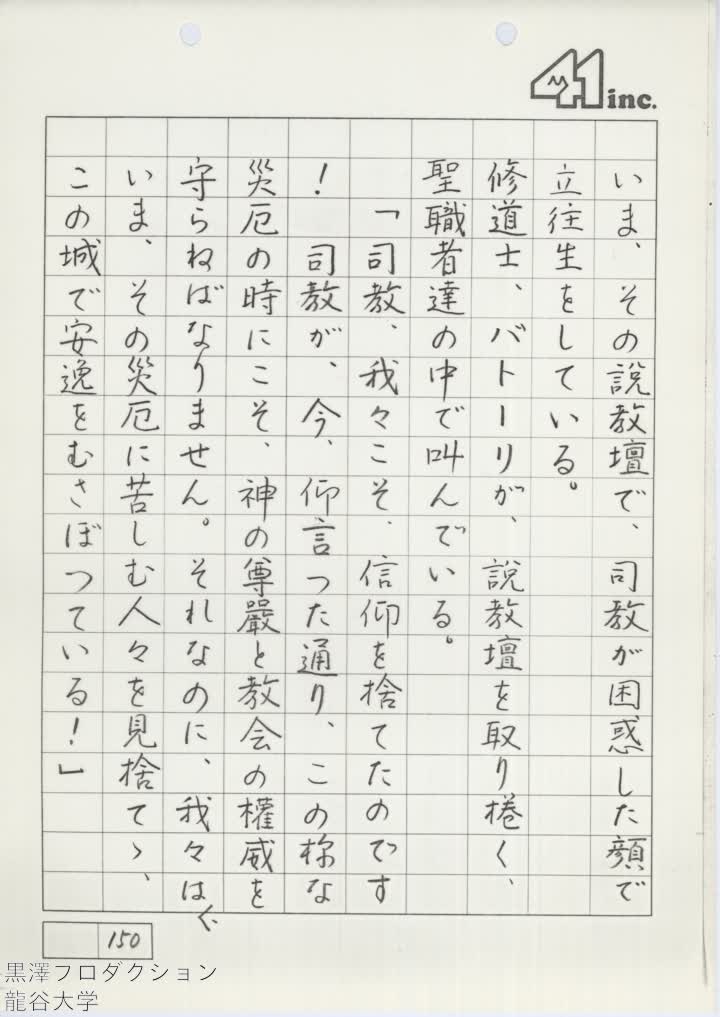 41 inc.
いま、その説教壇で、司教が困惑した顔で
立往生をしている。
修道士、バトーリが、説教壇を取り捲く、
聖職者達の中で叫んでいる。
「司教、我々こそ、信仰を捨てたのです
！　司教が、今、仰言った通り、この様な
災厄の時にこそ、神の尊厳と教会の權威を
守らねばなりません。それなのに、我々は、
いま、その災厄に苦しむ人々を見捨てゝ、
この城で安逸をむさぼっている！」
150
黒澤プロダクション
龍谷大学